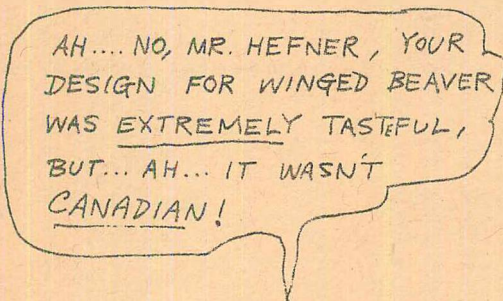 AH.... NO, MR. HEFNER, YOUR
DESIGN FOR WINGED BEAVER
WAS EXTREMELY TASTEFUL,
BUT... AH... IT WASN'T
CANADIAN!